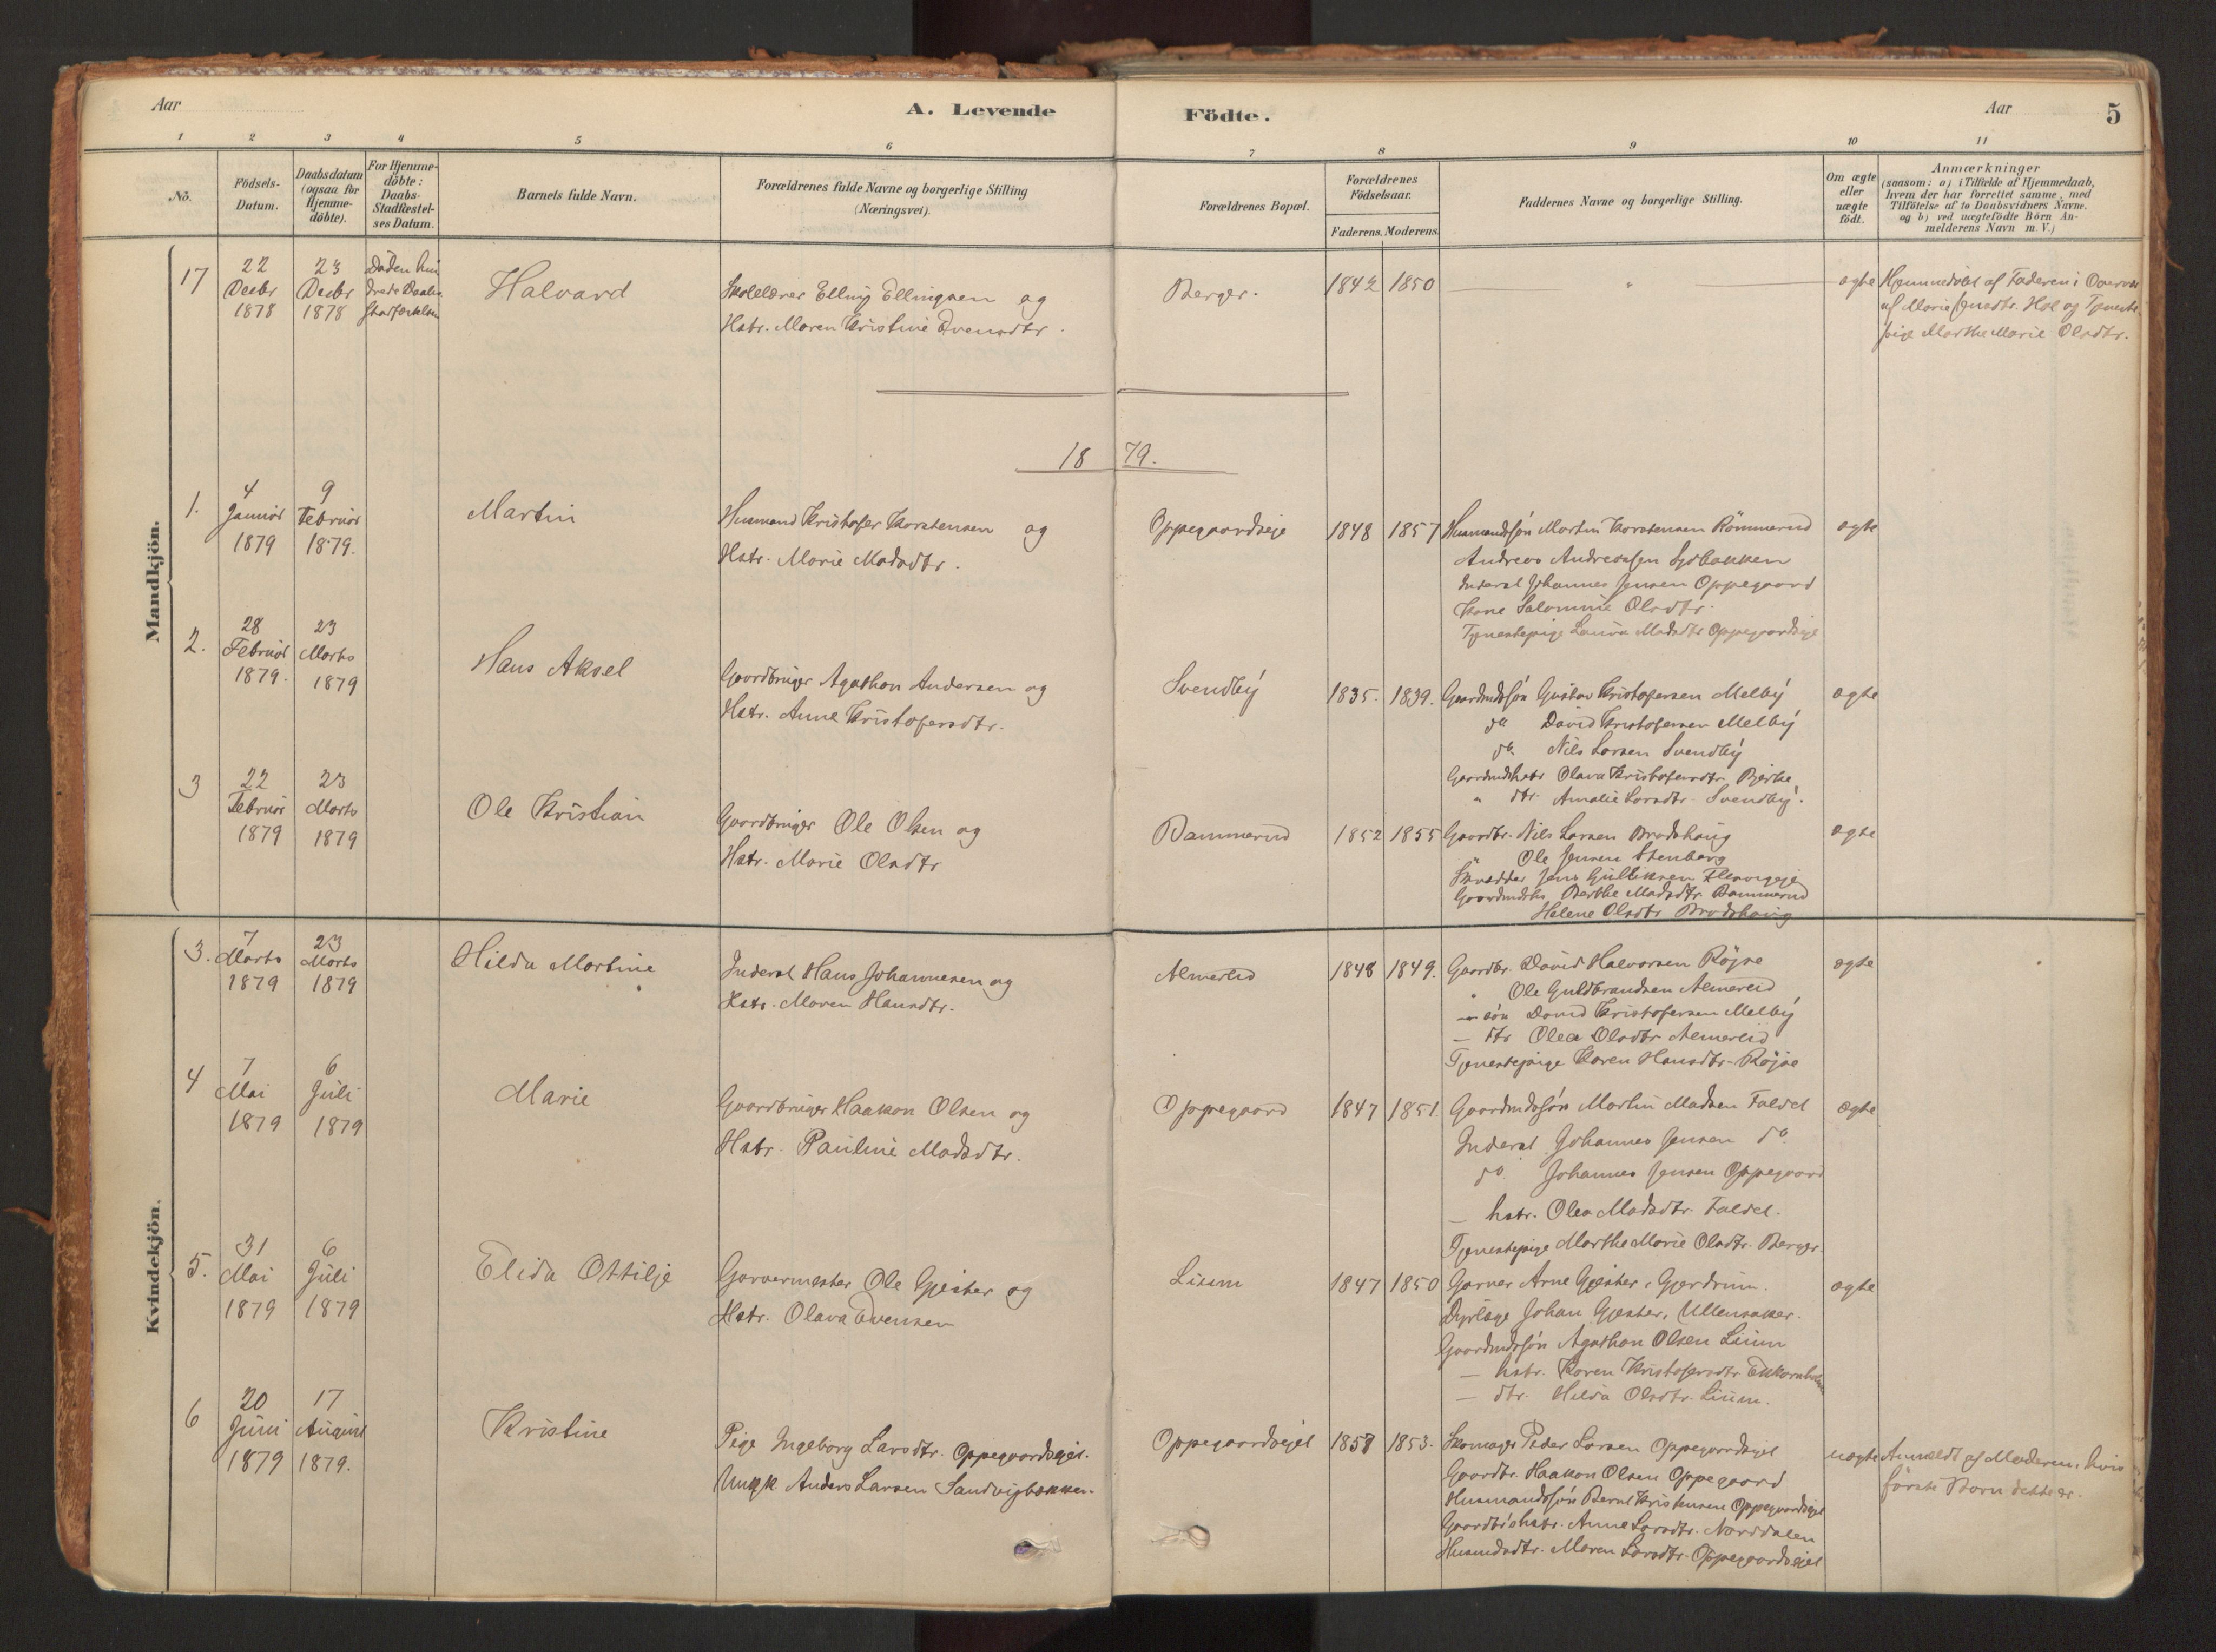 Aar
A. Levende
Födte.
Aar
5
1 2 3 4 5 6 7 8 9 10 11
No.
Födsels-Datum.
Daabsdatum (ogsaa for Hjemme-döbte).
For Hjemme-döbte: Daabs-Stadfæstel-ses Datum.
Barnets fulde Navn.
Forældrenes fulde Navne og borgerlige Stilling (Næringsvei).
Forældrenes Bopæl.
Forældrenes Födselsaar.
Faderens. Moderens.
Faddernes Navne og borgerlige Stilling.
Om ægte eller uægte födt.
Anmærkninger
(saasom: a) i Tilfælde af Hjemmedaab,
hvem der har forrettet samme, med
Tilföielse af to Daabsvidners Navne.
og b) ved uægtefödte Börn An-
melderens Navn m. V.)
Mandkjön.
17
22 Decbr 1878
23 Decbr 1878
Döden hin
drede Daabs
Halvard
Skolelærer Elling Ellingsen og
Hstr. Maren Kristine Evensdtr.
Berger.
1842
1850
"
ægte
Hjemmedöbt af Faderen i Overvær
af Marie Hol og Tjeneste
pige Marthe Marie Olsdtr.
1879.
1.
4 Januar 1879
9 Februar 1879.
Martin
Husmand Kristofer Thorstensen og
Hstr. Marie Madsdtr.
Oppegaardseje
1848
1857
Husmandssön Martin Thorstensen Römmerud
Andreas Andreassen
Inderst Johannes Jensen Oppegaard
Kone Salomine Olsdtr.
Tjenestepige Laura Madsdtr Oppegaardseje
ægte
2.
28 Februar 1879.
23 Marts 1879
Hans Aksel
Gaardbruger Agathon Andersen og
Hstr. Anne Kristofersdtr.
Svendby
1835.
1839.
Gaardmdssön Gustav Kristofersen Melby
do David Kristofersen Melby
do. Nils Larsen Svendby
Gaardmdshstr Olava Kristofersdtr. Bjerke
" dtr. Amalie Larsdtr. Svendby.
ægte
3
22 Februar 1879
23 Marts 1879
Ole Kristian
Gaardbruger Ole Olsen og
Hstr. Marie Olsdtr
Bammerud
1852
1855
Gaardbr. Nils Larsen Brodshaug
" Ole Jensen Stenberg
Skrædder Jens Gulliksen
Berthe Madsdtr Bammerud
Helene Olsdtr Brodshaug
ægte
Kvindekjön.
3.
7 Marts 1879
23 Marts 1879
Hilda Martine
Inderst Hans Johannesen og
Hstr. Maren Hansdtr.
Almerud
1848
1849.
Gaardbr. David Halvorsen Röjse
" Ole Guldbrandsen Almerud
— sön David Kristofersen Melby
— dtr Olea Olsdtr Almerud
Tjenestepige Karen Hansdtr Röjse
ægte
4
7 Mai 1879
6 Juli 1879
Marie
Gaardbruger Haakon Olsen og
Hstr. Pauline Madsdtr.
Oppegaard
1847
1851.
Gaardmdssön Martin Madsen Faldet
Inderst Johannes Jensen do.
do. Johannes Jensen Oppegaard
— hstr. Olea Madsdtr. Faldet.
Tjenestepige Marthe Marie Olsdtr. Berger.
ægte
5.
31 Mai 1879
6 Juli 1879
Elida Ottilje
Garvermester Ole Gjester og
Hstr. Olava Evensen
Lium
1847
1850
Garver Arne Gjester, Gjerdrum.
Dyrlæge Johan Gjester, Ullensaker.
Gaardmdssön Agathon Olsen Lium
— hstr. Karen Kristofersdtr
— dtr. Hilda Olsdtr. Lium.
ægte
6
20 Juni 1879
17 August 1879.
Kristine
Pige Ingeborg Larsdtr. Oppegaardsejet.
Ungk Anders Larsen Sandvigbakken.
Oppegaardsejet
1857
1853.
Skomager Peder Larsen Oppegaardsejet
Gaardbr. Haakon Olsen Oppegaard
Husmandssön Bernt Kristensen Oppegaardsejet
Gaardbr hstr. Anne Larsdtr. Norddalen
Husmdsdtr. Maren Larsdtr. Oppegaardsejet
uægte
Anmeldt af Moderen, hvis
förste Barn dette er.